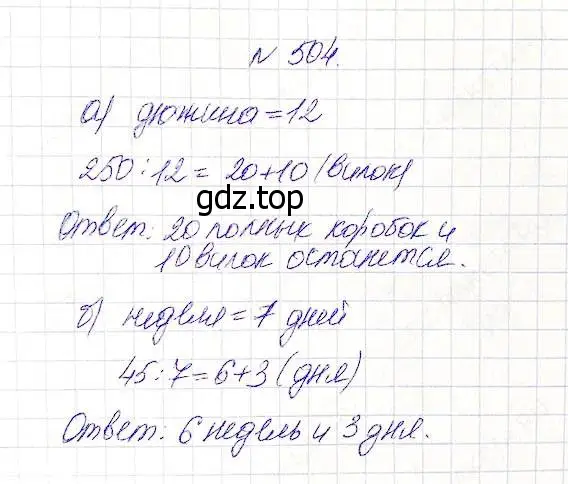 № 504.
а) дюжина = 12
250 : 12 = 20 + 10 (вилок)
gdz.top
Ответ: 20 полных коробок и
10 вилок останется.
б) неделя = 7 дней
45 : 7 = 6 + 3 (дня)
Ответ: 6 недель и 3 дня.